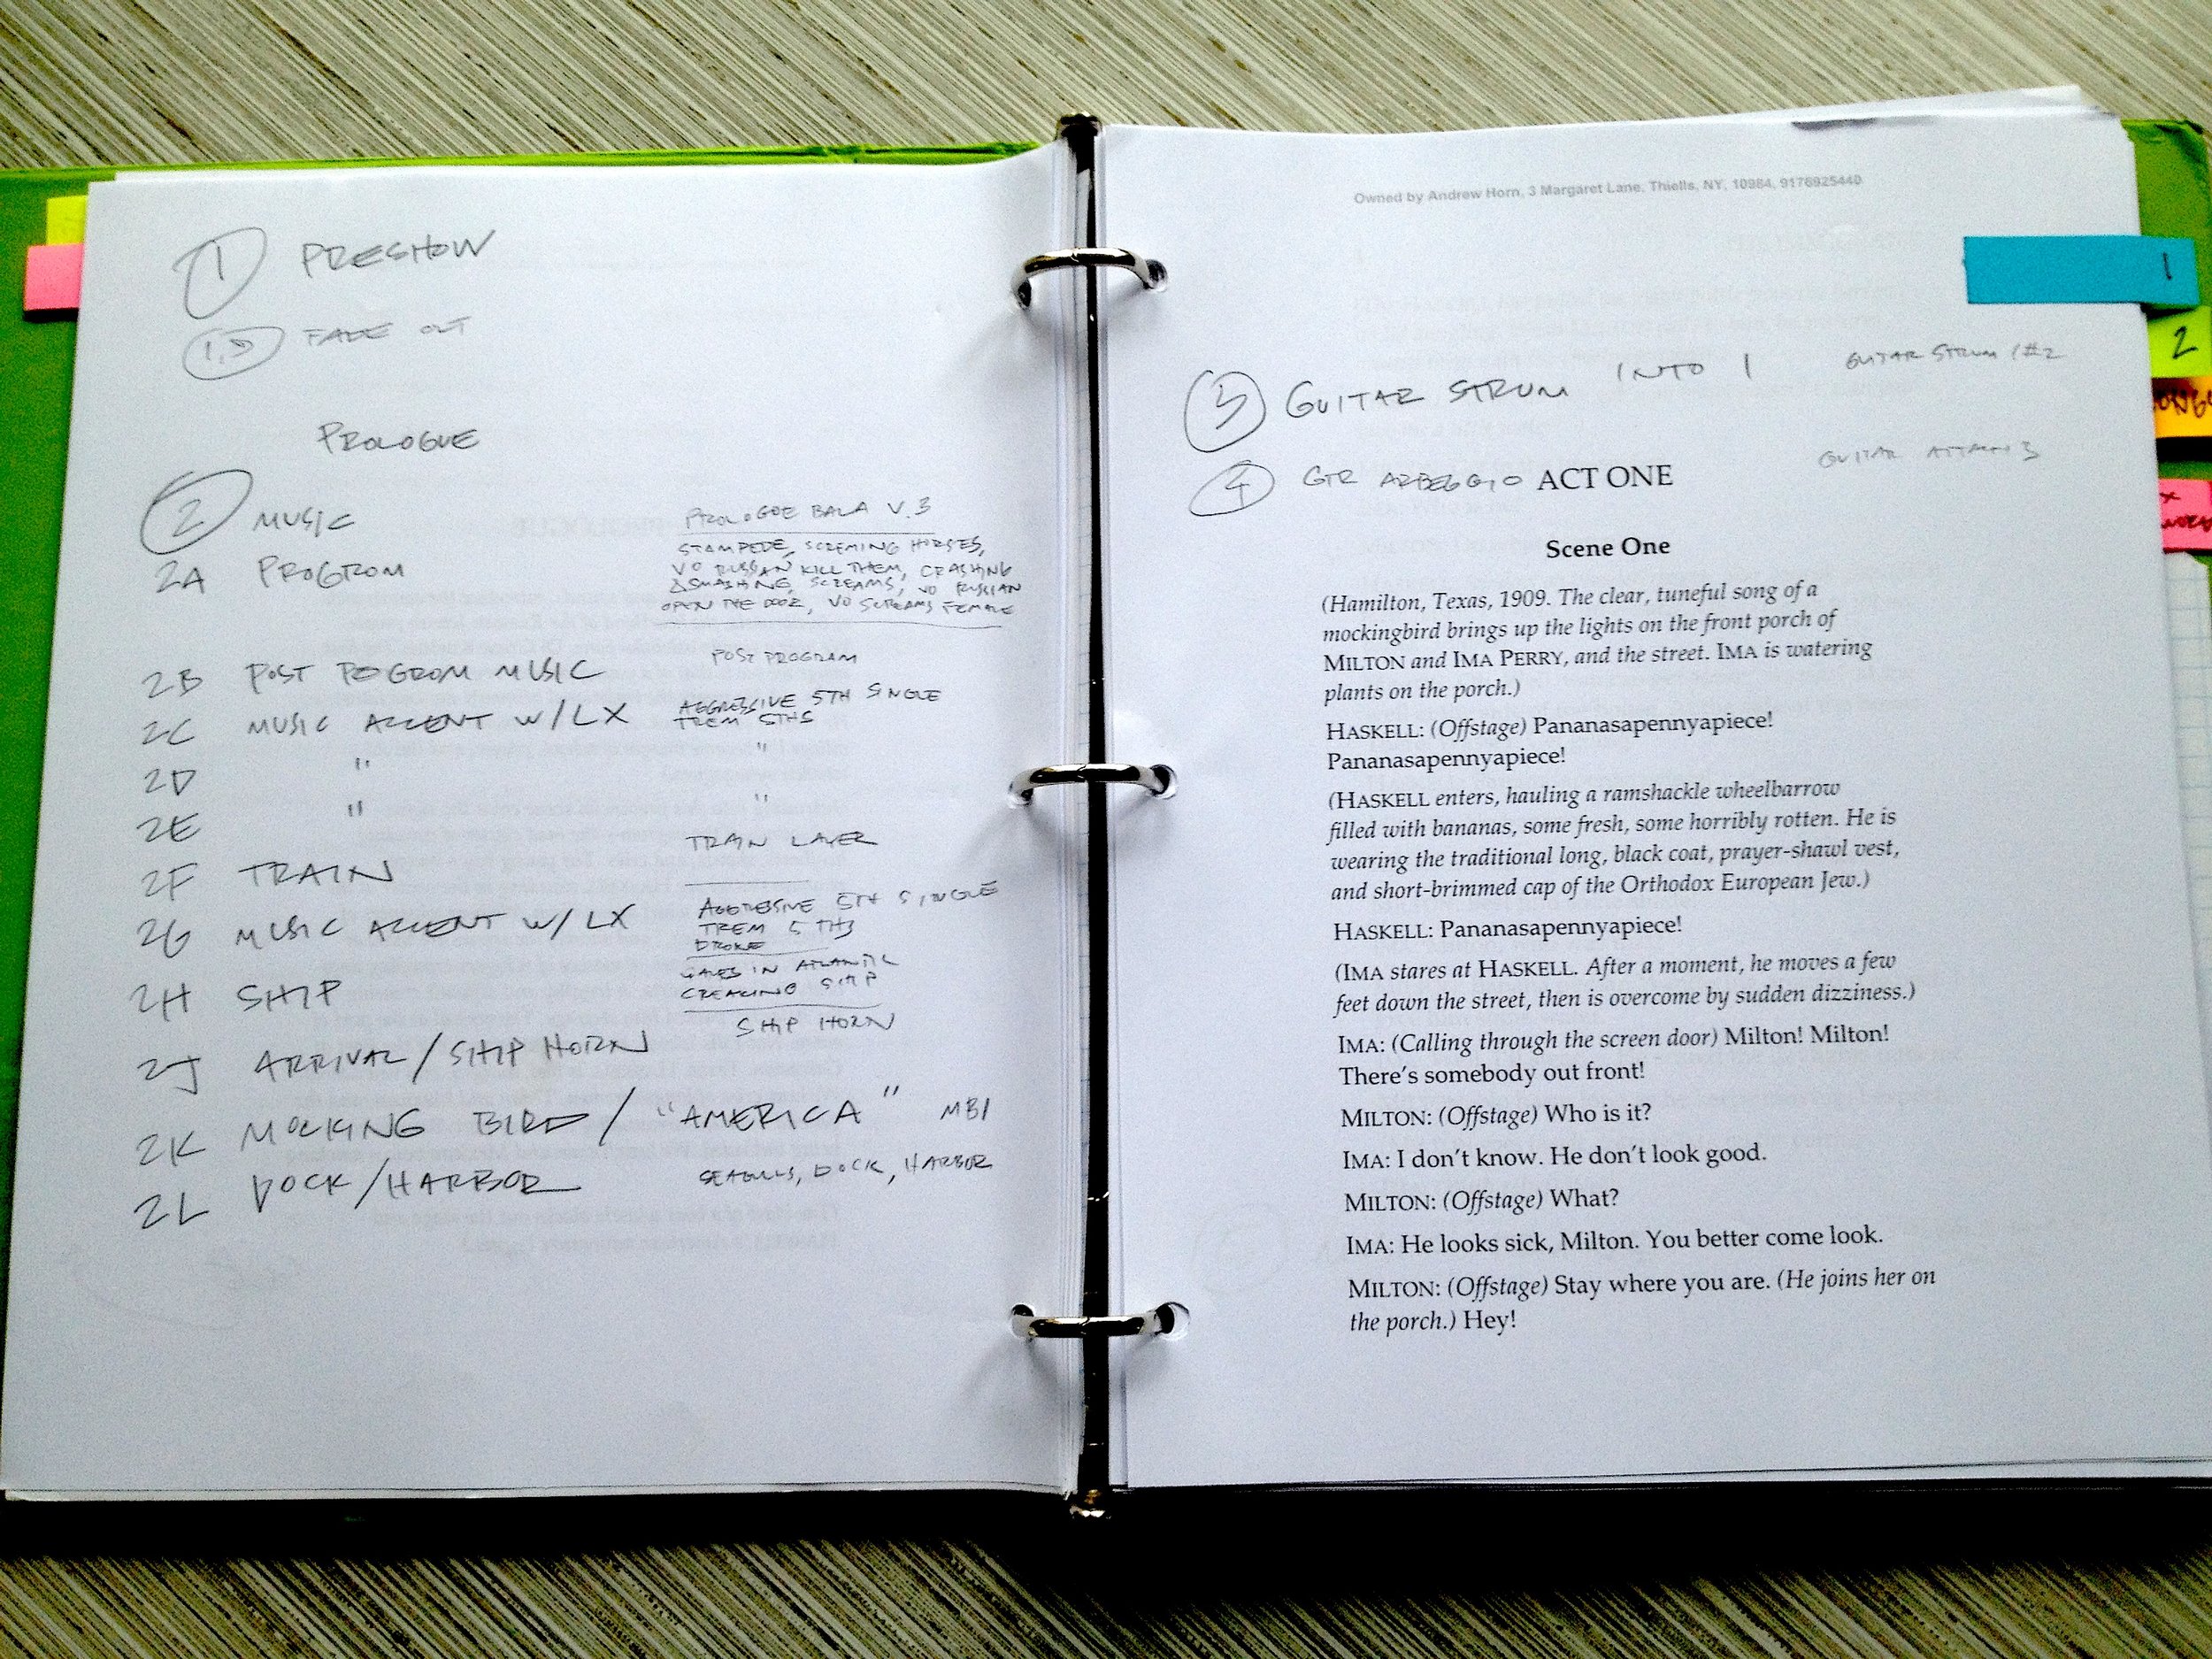 1 PRESHOW
1.5 FADE OUT
PROLOGUE
2 MUSIC
PROLOGUE BALA V.3
2A PROGROM
STAMPEDE, SCREMING HORSES,
VO RUSSIAN KILL THEM, CRASHING
& SMASHING, SCREAMS, VO RUSSIAN
OPEN THE DOOR, VO SCREAMS FEMALE
2B POST POGROM MUSIC
POST PROGRAM
2C MUSIC ACCENT W/LX
AGGRESSIVE 5TH SINGLE
TREM 5THS
2D " "
2E " "
2F TRAIN
TRAIN LAYER
2G MUSIC ACCENT W/LX
AGGRESSIVE 5TH SINGLE
TREM 5THS
DRONE
2H SHIP
WAVES IN ATLANTIC
CREAKING SHIP
2J ARRIVAL/SHIP HORN
SHIP HORN
2K MOCKING BIRD/"AMERICA" MB1
2L DOCK/HARBOR
SEAGULLS, DOCK, HARBOR
Owned by Andrew Horn, 3 Margaret Lane, Thiells, NY, 10984, 9176925440
1
2
3 GUITAR STRUM INTO 1 GUITAR STRUM 1#2
4 GTR ARPEGGIO ACT ONE
GUITAR
Scene One
(Hamilton, Texas, 1909. The clear, tuneful song of a
mockingbird brings up the lights on the front porch of
MILTON and IMA PERRY, and the street. IMA is watering
plants on the porch.)
HASKELL: (Offstage) Pananasapennyapiece!
Pananasapennyapiece!
(HASKELL enters, hauling a ramshackle wheelbarrow
filled with bananas, some fresh, some horribly rotten. He is
wearing the traditional long, black coat, prayer-shawl vest,
and short-brimmed cap of the Orthodox European Jew.)
HASKELL: Pananasapennyapiece!
(IMA stares at HASKELL. After a moment, he moves a few
feet down the street, then is overcome by sudden dizziness.)
IMA: (Calling through the screen door) Milton! Milton!
There's somebody out front!
MILTON: (Offstage) Who is it?
IMA: I don't know. He don't look good.
MILTON: (Offstage) What?
IMA: He looks sick, Milton. You better come look.
MILTON: (Offstage) Stay where you are. (He joins her on
the porch.) Hey!